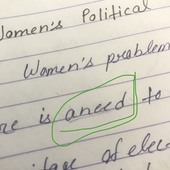 Women's Political
Women's problem
re is aneed to
of elec